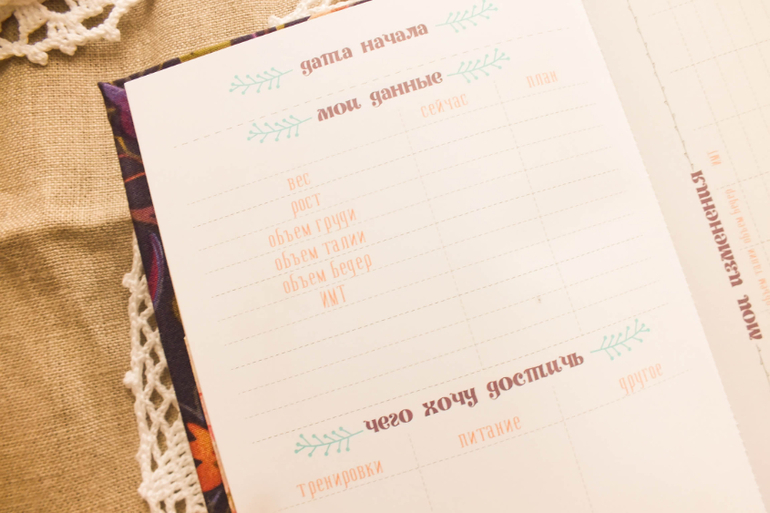 дата начала
мои данные
сейчас план
вес
рост
объем груди
объем талии
объем бедер
ИМТ
чего хочу достичь
тренировки питание другое
мои изменения